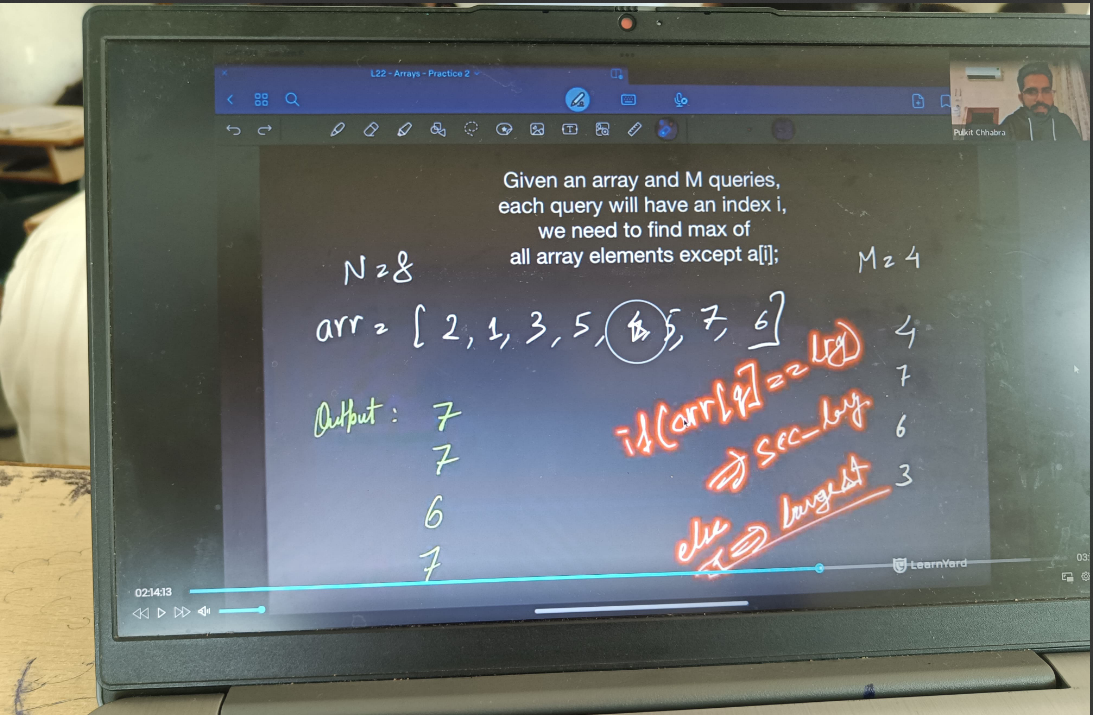 L22 - Arrays - Practice 2
Pulkit Chhabra
Given an array and M queries,
each query will have an index i,
we need to find max of
all array elements except a[i];
N = 8
M = 4
arr = [ 2, 1, 3, 5, 5, 7, 6 ]
4
7
6
3
Output : 7
7
6
7
if(arr[q] == lrg)
=> sec_lrg.
else
=> largest
LearnYard
02:14:13
03: